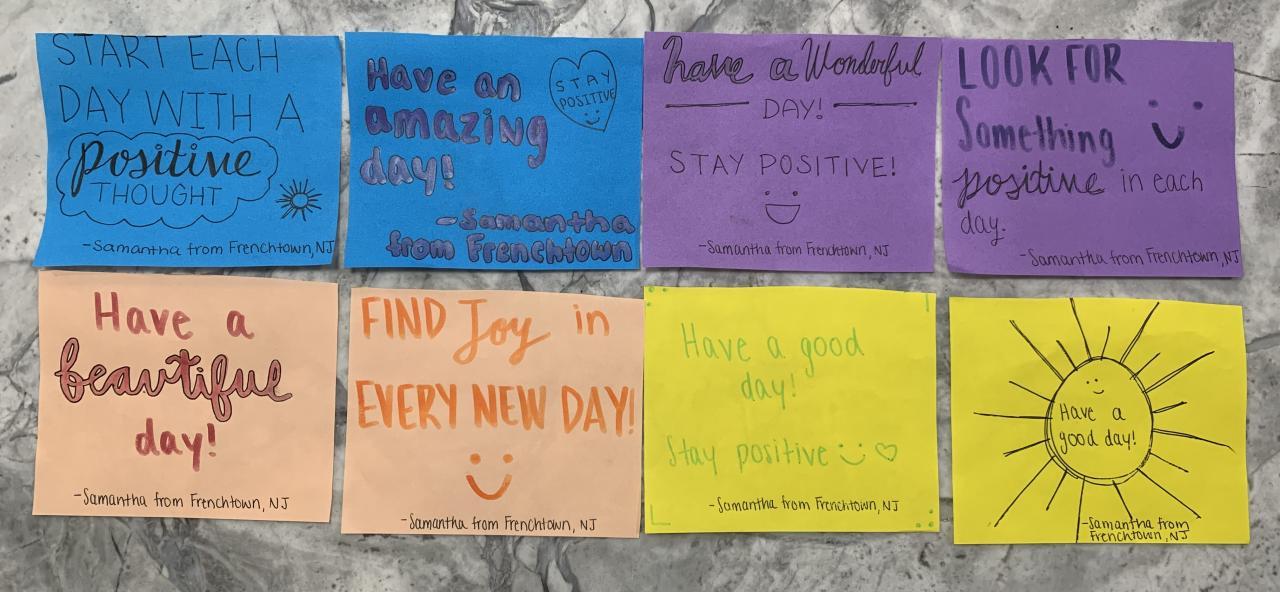 START EACH
DAY WITH A
positive
THOUGHT
-Samantha from Frenchtown, NJ
Have an
amazing
day!
STAY
POSITIVE
-Samantha
from Frenchtown
have a Wonderful
DAY!
STAY POSITIVE!
-Samantha from Frenchtown, NJ
LOOK FOR
Something
positive in each
day.
-Samantha from Frenchtown, NJ
Have a
beautiful
day!
-Samantha from Frenchtown, NJ
FIND Joy in
EVERY NEW DAY!
-Samantha from Frenchtown, NJ
Have a good
day!
Stay positive
-Samantha from Frenchtown, NJ
Have a
good day!
-Samantha from
Frenchtown, NJ